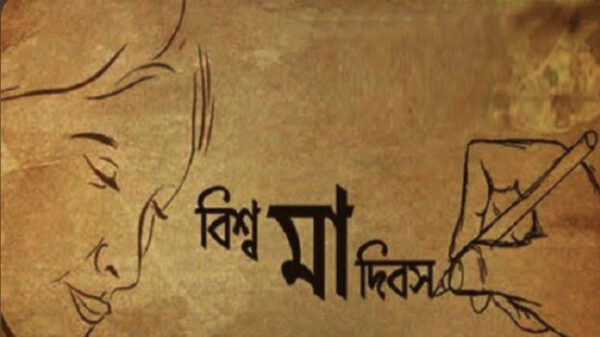 বিশ্ব মা দিবস